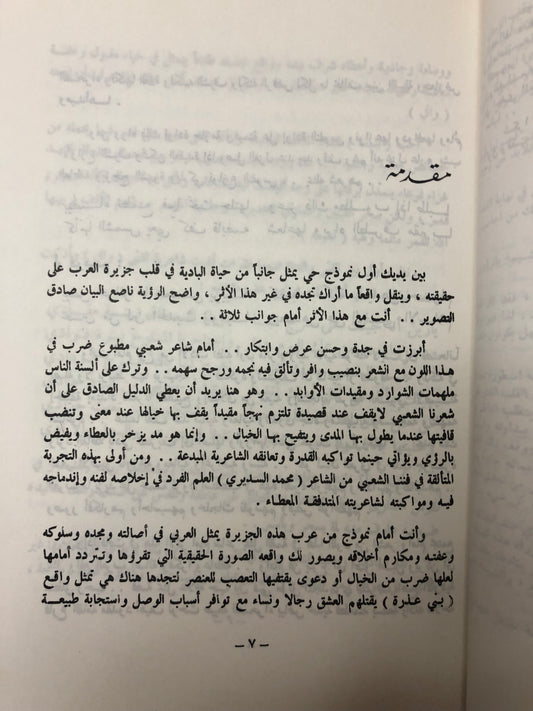 مقدمة
بين يديك أول نموذج حي يمثل جانباً من حياة البادية في قلب جزيرة العرب على
حقيقته ، وينقل واقعاً ما أراك تجده في غير هذا الأثر ، واضح الرؤية ناصع البيان صادق
التصوير . . أنت مع هذا الأثر أمام جوانب ثلاثة . .
أبرزت في جدة وحسن عرض وابتكار . . أمام شاعر شعبي مطبوع ضرب في
هذا اللون مع انشعر بنصيب وافر وتألق فيه نجمه ورجح سهمه . . وترك على ألسنة الناس
ملهمات الشوارد ومقيدات الأوابد . . وهو هنا يريد أن يعطي الدليل الصادق على أن
شعرنا الشعبي لايقف عند قصيدة تلتزم نهجاً مقيداً يقف بها خيالها عند معنى وتنضب
قافيتها عندما يطول بها المدى ويتفيح بها الخيال . . وإنما هو مد يزخر بالعطاء ويفيض
بالرؤي ويؤاتي حينما تواكبه القدرة وتعانقه الشاعرية المبدعة . . ومن أولى بهذه التجربة
المتألقة في فننا الشعبي من الشاعر ( محمد السديري ) العلم الفرد في إخلاصه لفنه وإندماجه
فيه ومواكبته لشاعريته المتدفقة المعطاء .
وأنت أمام نموذج من عرب هذه الجزيرة يمثل العربي في أصالته ومجده وسلوكه
وعفته ومكارم أخلاقه ويصور لك واقعه الصورة الحقيقية التي تقرؤها وتتردد أمامها
لعلها ضرب من الخيال أو دعوى يقتفيها التعصب للعنصر نتجدها هناك هي تمثل واقع
( بني عذرة ) يقتلهم العشق رجالا ونساء مع توافر أسباب الوصل واستجابة طبيعة
– ٧ –